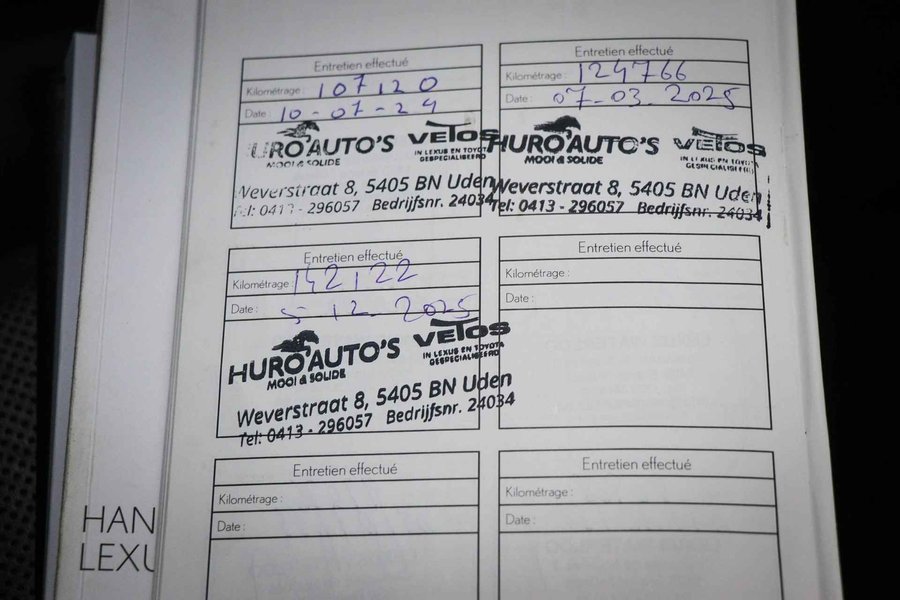 Entretien effectué
Kilométrage : 107120
Date : 10-07-24
URO AUTO'S VETOS
MOOI & SOLIDE IN LEXUS EN TOYOTA
GESPECIALISEERD
Weverstraat 8, 5405 BN Uden
Tel: 0413 - 296057 Bedrijfsnr. 24034
Entretien effectué
Kilométrage : 124766
Date : 07-03. 2025
HURO AUTO'S VETOS
MOOI & SOLIDE IN LEXUS EN TOYOTA
GESPECIALISEERD
Weverstraat 8, 5405 BN Uden
Tel: 0413 - 296057 Bedrijfsnr. 24034
Entretien effectué
Kilométrage : 142122
Date : 5-12 2025
HURO AUTO'S VETOS
MOOI & SOLIDE IN LEXUS EN TOYOTA
GESPECIALISEERD
Weverstraat 8, 5405 BN Uden
Tel: 0413 - 296057 Bedrijfsnr. 24034
Entretien effectué
Kilométrage :
Date :
Entretien effectué
Kilométrage :
Date :
Entretien effectué
Kilométrage :
Date :
HAN
LEXU